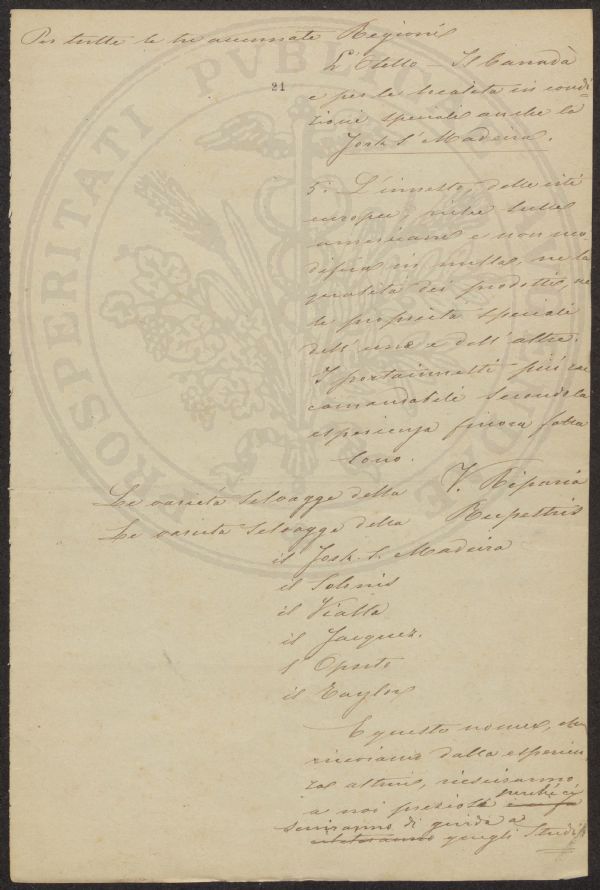 Per tutte le tre accennate Regioni
L'Otello – Il Canadà
21
e per le località in condi-
zioni speciali anche lo
York S. Madeira.
5° L'innesto, delle viti
europee, sulle
americane e non mo-
difica in nulla, ne la
qualità dei prodotti, ne
le proprietà speciali
dell'una e dell'altra.
I portainnesti più rac
comandabili secondo la
esperienza finora fatta
sono.
Le varietà selvagge della V. Riparia
Le varietà selvagge della Rupestris
il York. S. Madeira
il Solonis
il Vialla
il Jacquez.
l'Oporto
il Taylor
E questo nome, che
dalla esperien
za altrui, riesciranno
a noi preziosi perchè ci
serviranno di guida a
quegli Studi
PROSPERITATI PUBLICAE AUGENDAE